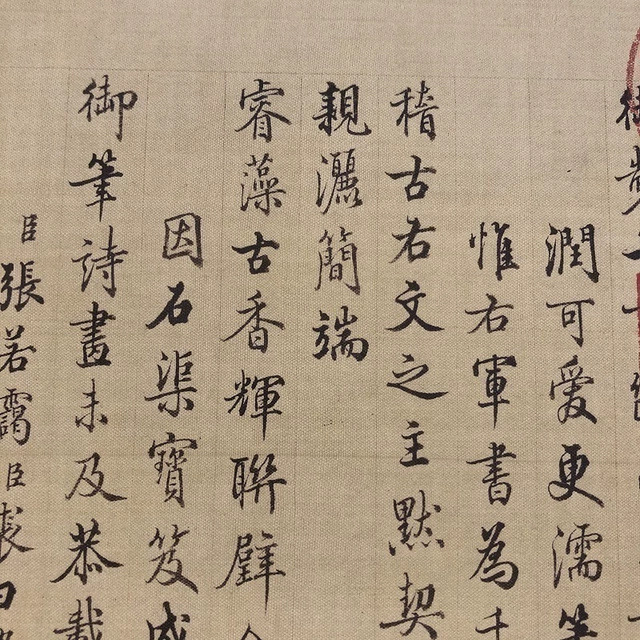 潤可愛更濡筆
惟右軍書為千
稽古右文之主默契
親灑簡端
睿藻古香輝聯璧合
因石渠寶笈成
御筆詩畫未及恭載
臣張若靄臣裘曰